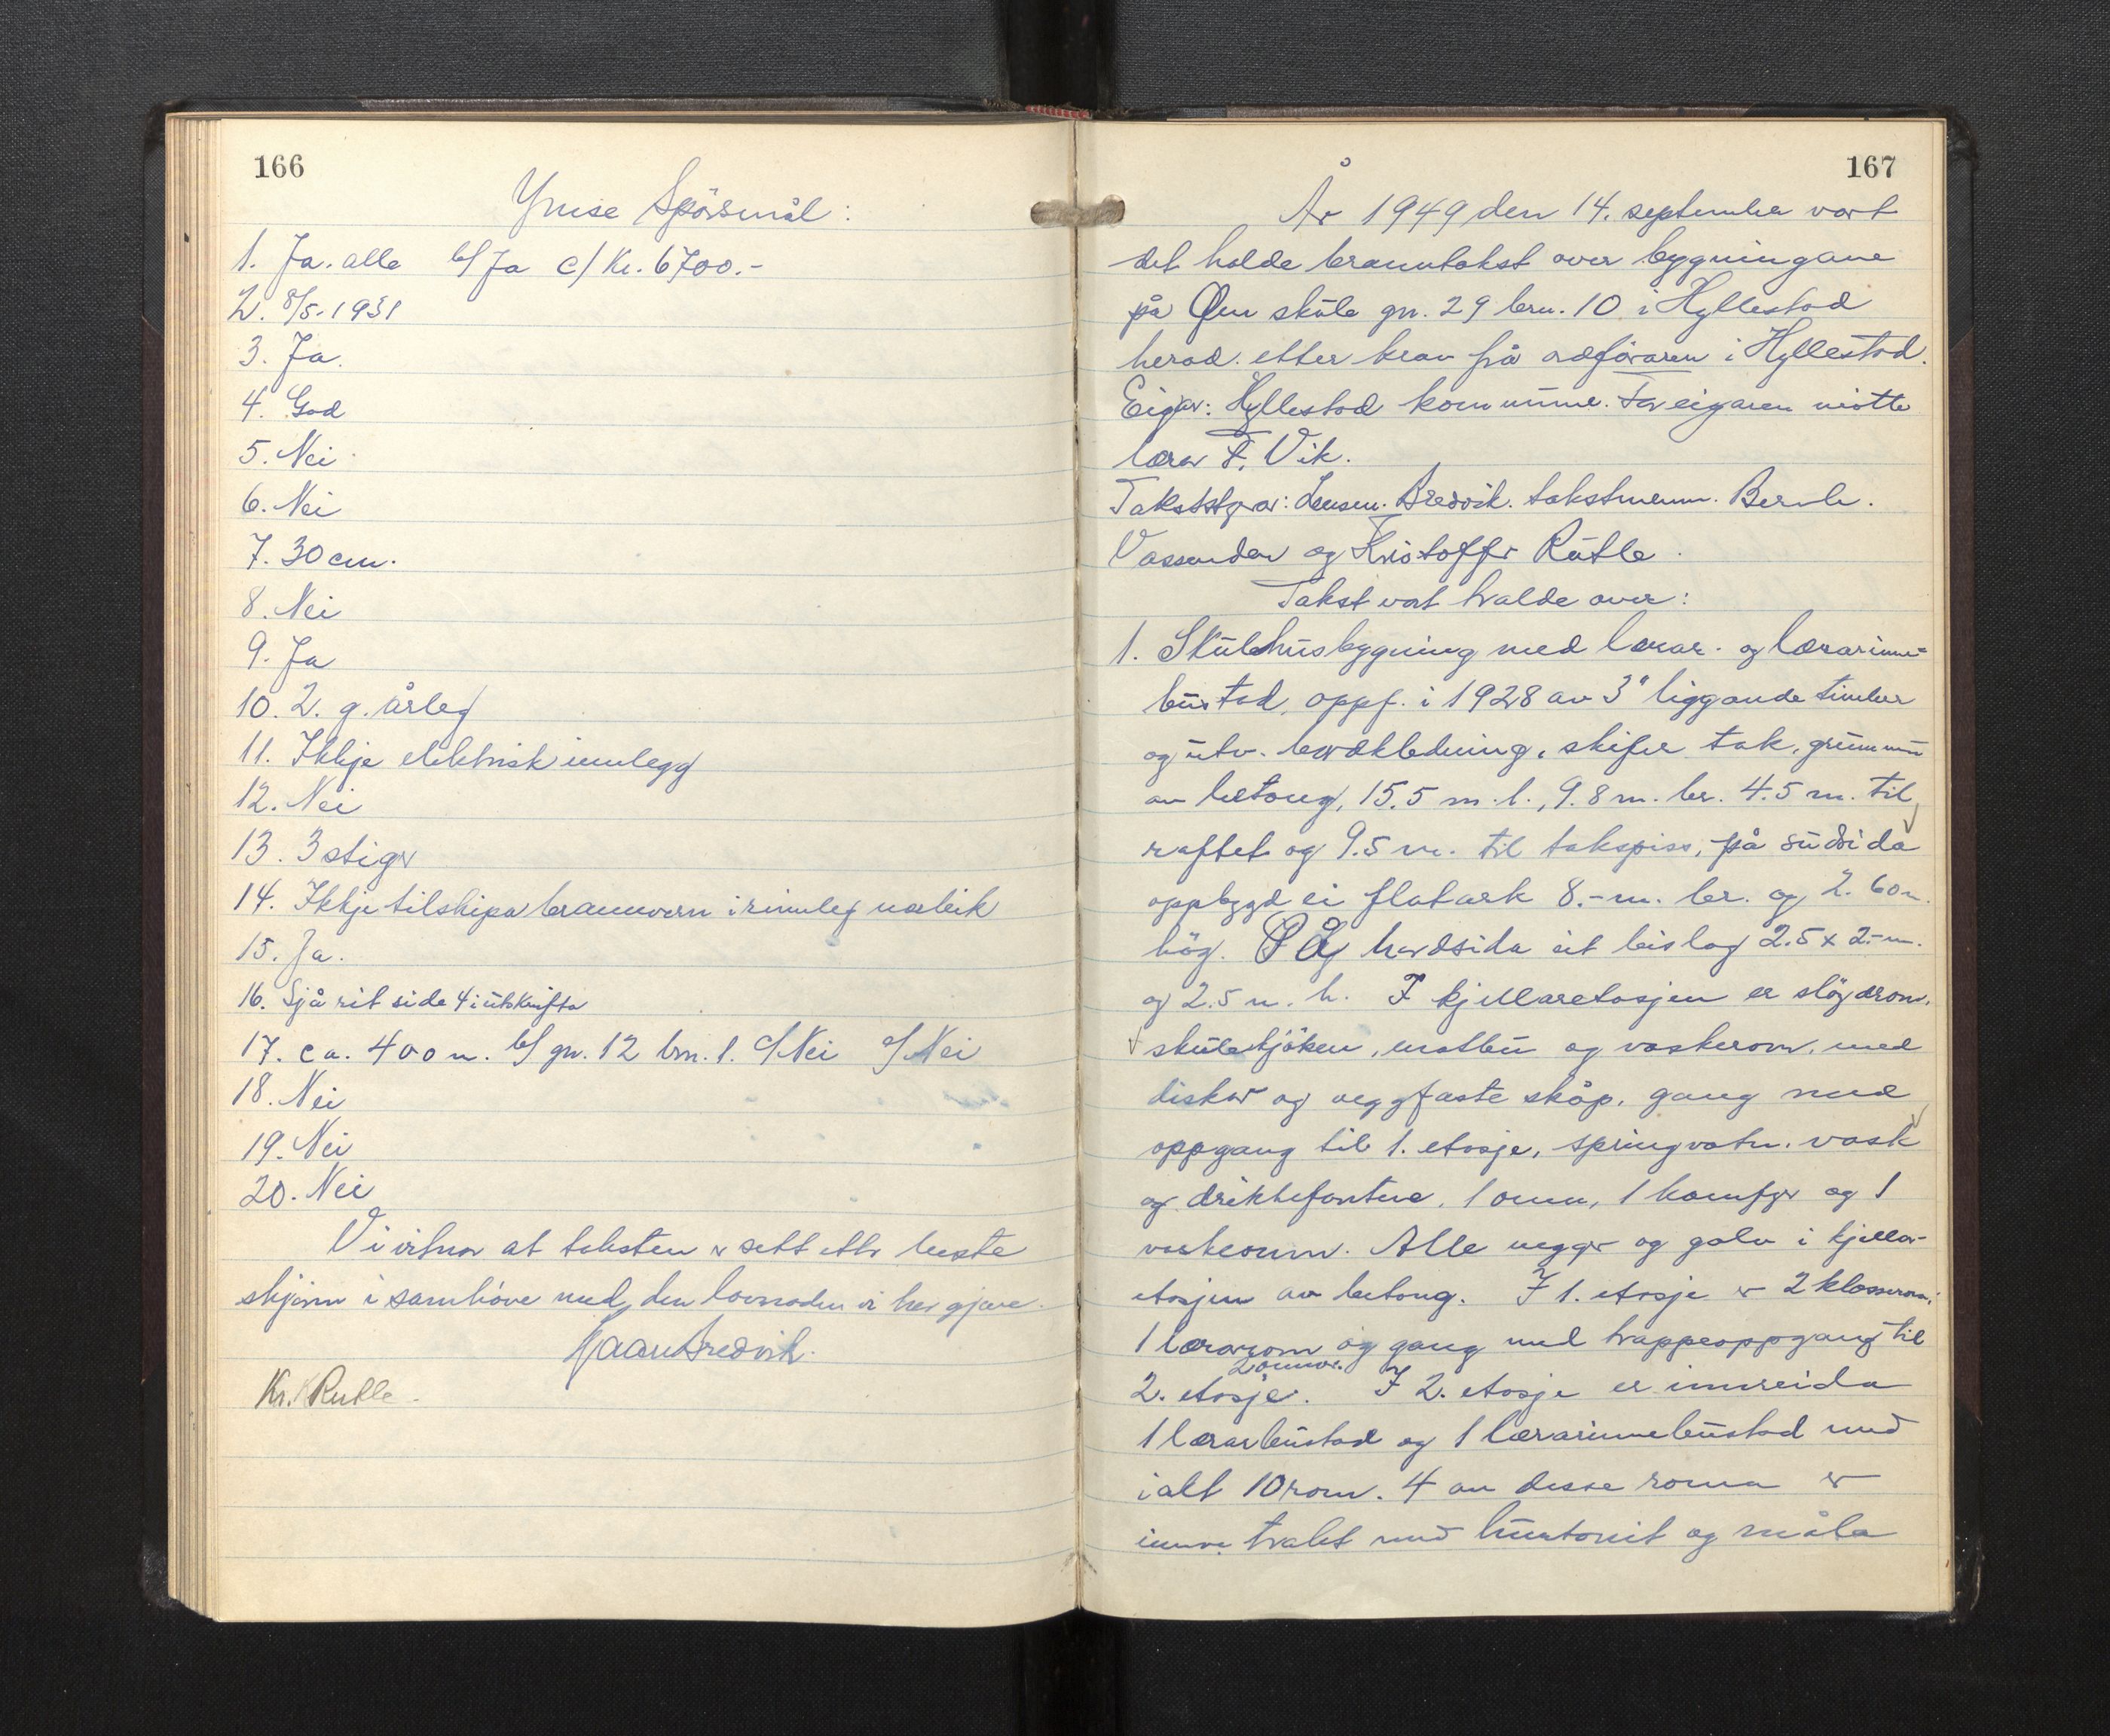 166
Ymse Spörsmål:
1. Ja. alle b/ Ja c/ Kr. 6700.-
2. 8/5-1931
3. Ja.
4. God
5. Nei
6. Nei
7. 30 cm.
8. Nei
9. Ja
10. 2. g. årleg
11. Ikkje elektrisk innlegg
12. Nei
13. 3 stigar
14. Ikkje tilskipa brannvern i rimeleg nærleik
15. Ja.
16. Sjå rit side 4 i utskrifta
17. ca. 400 m. b/ gn. 12 brn. 1. c/ Nei d/ Nei
18. Nei
19. Nei
20. Nei
Vi vitnar at taksten er sett etter beste
skjönn i samhöve med den lovnaden vi har gjeve.
Bredvik.
Kr. K Rutle.
167
År 1949 den 14. september vart
det halde branntakst over bygningane
på Øen skule gn. 29 brn. 10 i Hyllestad
herad. etter krav frå ordføraren i Hyllestad.
Eigar: Hyllestad kommune. For eigaren møtte
lærar F. Vik.
Takststyrar: Lensm. Bredvik. takstmenn. Bernh.
Vassenden og Kristoffer Rutle.
Takst vart halde over:
1. Skulehusbygning med lærar- og lærarinne-
bustad, oppf. i 1928 av 3" liggande timber
og utv. bordkledning, skifer tak, grunnmur
av betong, 15.5 m. l., 9.8 m. br. 4.5 m. til
raftet og 9.5 m. til takspiss, på sudsida
oppbygd ei flatark 8.- m. br. og 2.60 m.
hög. På nordsida eit bislag 2.5 x 2.- m.
og 2.5 m. h. I kjellaretasjen er slöjdrom,
skulekjöken, matbu og vaskerom, med
diskar og veggfaste skåp, gang med
oppgang til 1. etasje, springvatn, vask
og drikkefontene, 1 omn, 1 komfyr og 1
vaskeomn. Alle veggar og golv i kjellar-
etasjen av betong. I 1. etasje er 2 klasserom,
1 lærarrom og gang med trappeoppgang til
2 omnar.
2. etasje. I 2. etasje er innreida
1 lærarbustad og 1 lærarinnebustad med
i alt 10 rom. 4 av desse roma er
innv. trekt med huntonit og måla